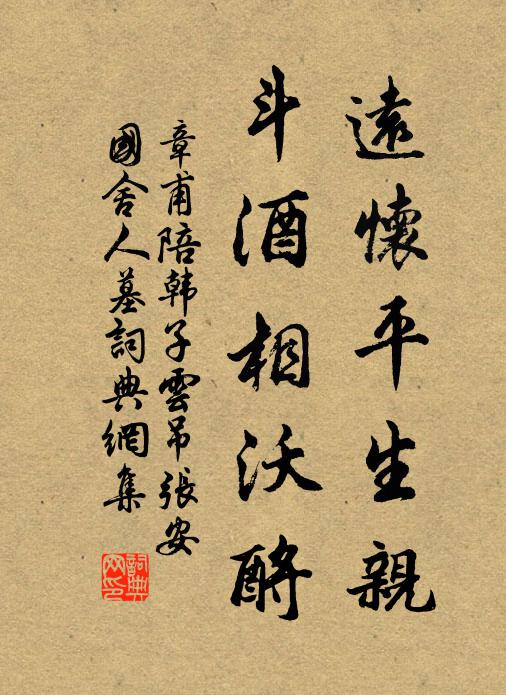 遠懷平生親
斗酒相沃酹
章甫陪韩子雲吊張安
國舍人墓詞典網集
詞典网印